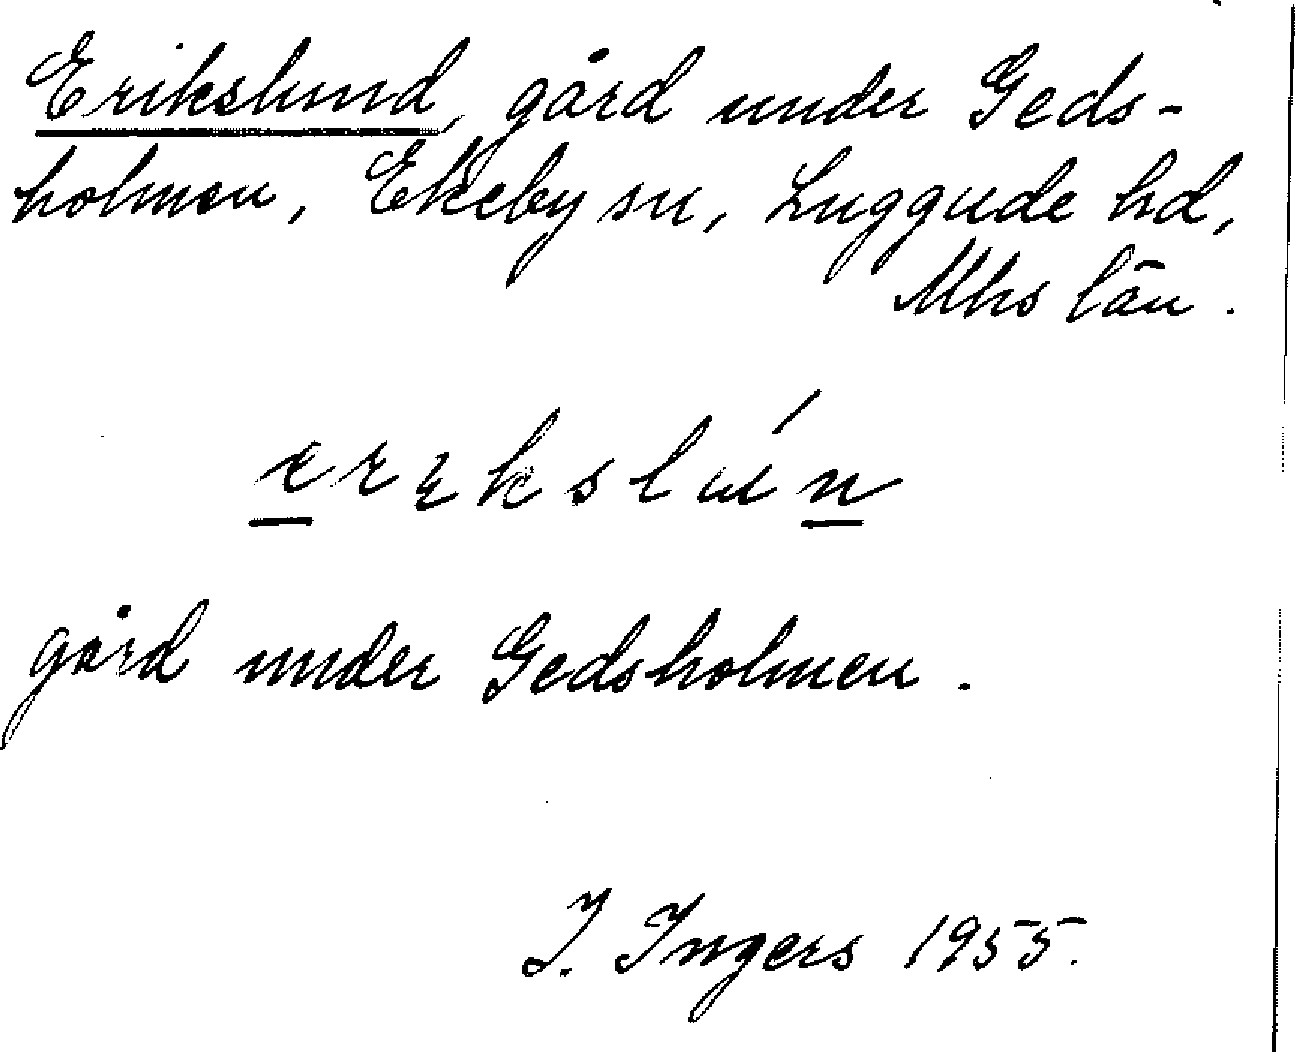 Erikslund, gård under Geds-
holmen, Ekeby sn, Luggude hd,
Mhs län.
gård under Gedsholmen.
I. Ingers 1955.